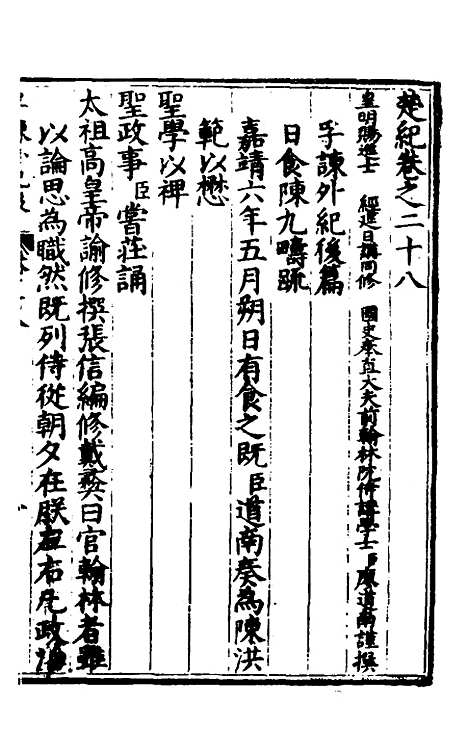 楚紀卷之二十八
皇明賜進士 經筵日講同修 國史奉直大夫前翰林院侍講學士臣廖道南謹撰
孚諫外紀後篇
日食陳九疇疏
嘉靖六年五月朔日有食之既臣道南奏為陳洪
範以懋
聖學以裨
聖政事臣嘗莊誦
太祖高皇帝諭修撰張信編修戴彝曰官翰林者雖
以論思為職然既列侍從朝夕在朕左右凡政